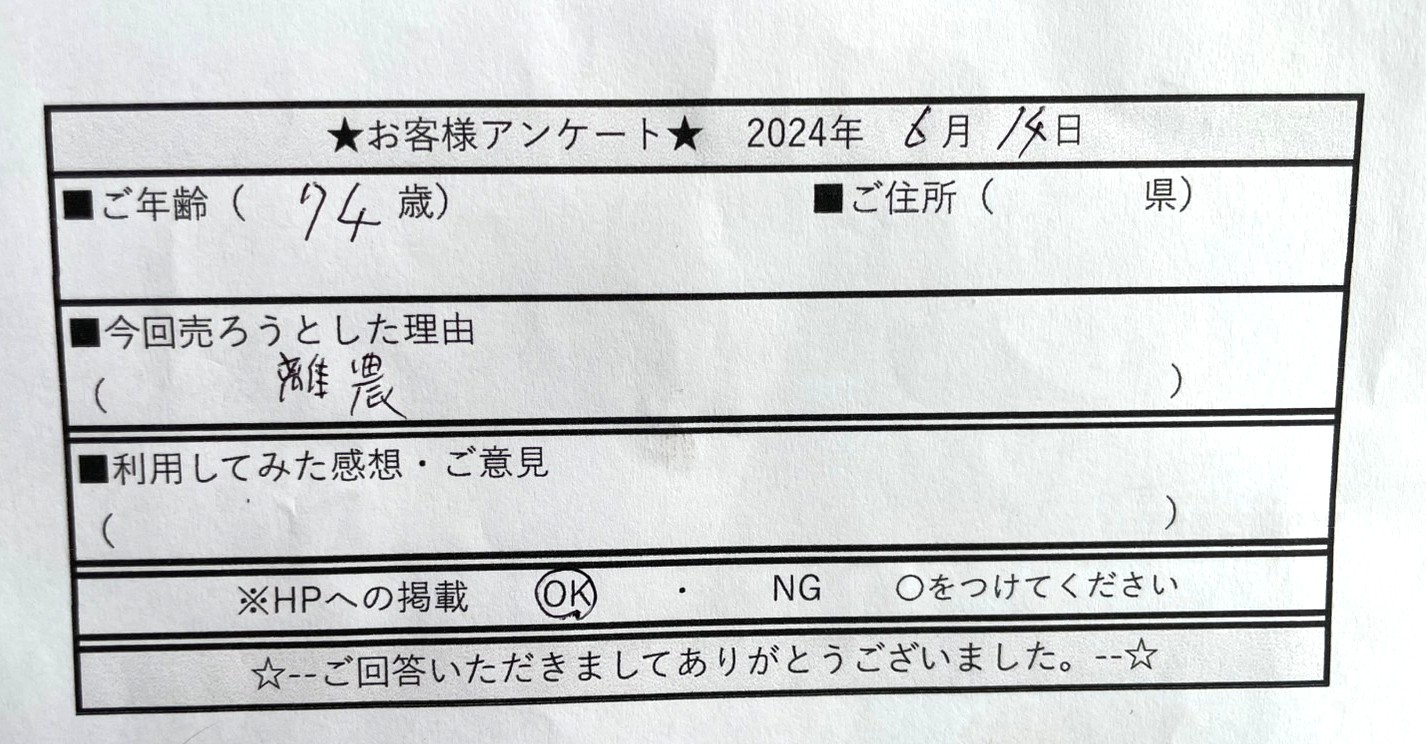 ★お客様アンケート★ 2024年 6月 14日
■ご年齢( 74 歳) ■ご住所( 県)
■今回売ろうとした理由
( 離農 )
■利用してみた感想・ご意見
( )
※HPへの掲載 OK ・ NG ○をつけてください
☆--ご回答いただきましてありがとうございました。--☆